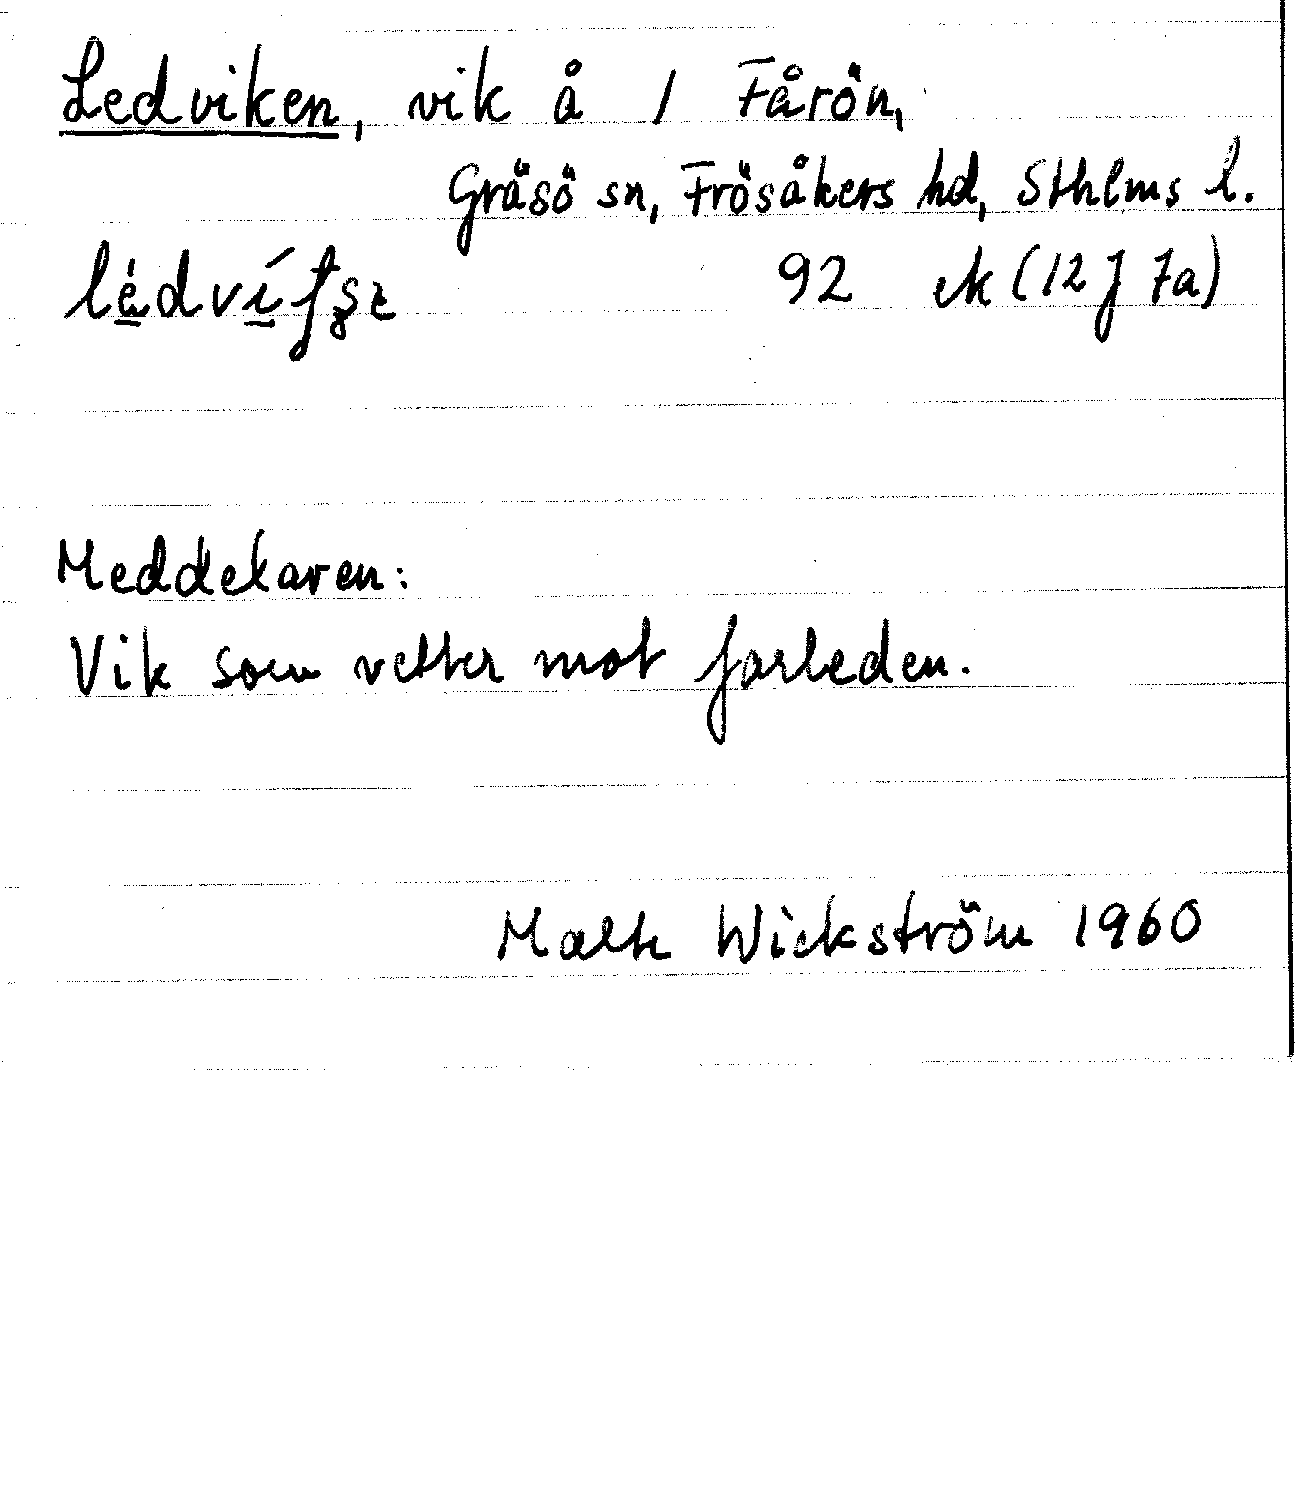 Ledviken, vik å 1 Fårön,
Gräsö sn, Frösåkers hd, Sthlms l.
92 ek (12 J 7a)
Meddelaren:
Vik som vetter mot farleden.
Malte Wickström 1960